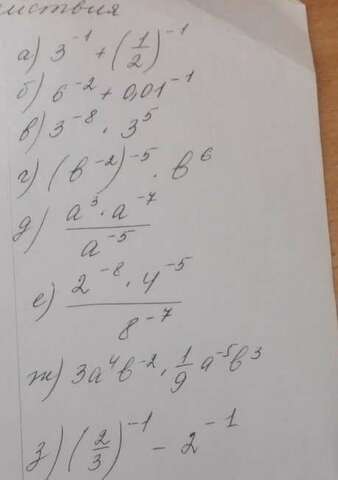 а) 3⁻¹ + (1/2)⁻¹
б) 6⁻² + 0,01⁻¹
в) 3⁻⁸ · 3⁵
г) (b⁻²)⁻⁵ · b⁶
д) a³ · a⁻⁷ / a⁻⁵
е) 2⁻⁸ · 4⁻⁵ / 8⁻⁷
ж) 3a⁴b⁻² · 1/9 a⁻⁵b³
з) (2/3)⁻¹ − 2⁻¹